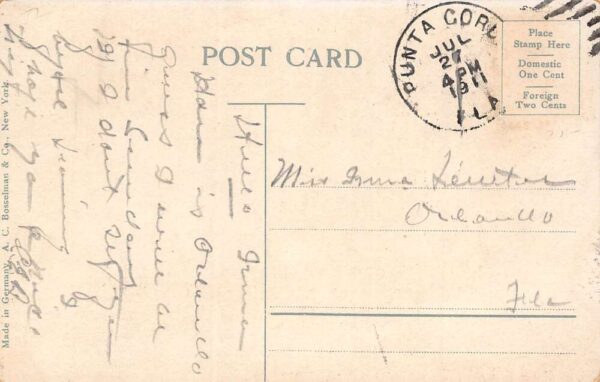 POST CARD
PUNTA GORD
JUL
27
4 PM
1911
FLA
Place
Stamp Here
Domestic
One Cent
Foreign
Two Cents
Miss Irma
Orlando
Fla
Hello Irma
How is Orlando
Guess I will be
Sunday
if I dont see you
before leaving
I hope you
Made in Germany, A. C. Bosselman & Co., New York